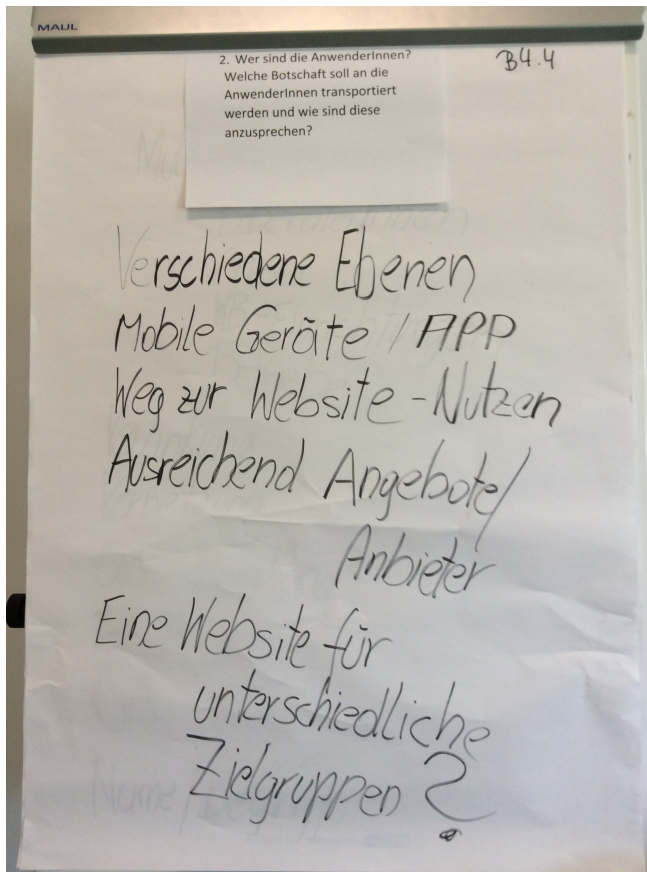 MAUL
2. Wer sind die AnwenderInnen?
Welche Botschaft soll an die
AnwenderInnen transportiert
werden und wie sind diese
anzusprechen?
B4.4
Verschiedene Ebenen
Mobile Geräte / APP
Weg zur Website - Nutzen
Ausreichend Angebote/
Anbieter
Eine Website für
unterschiedliche
Zielgruppen?